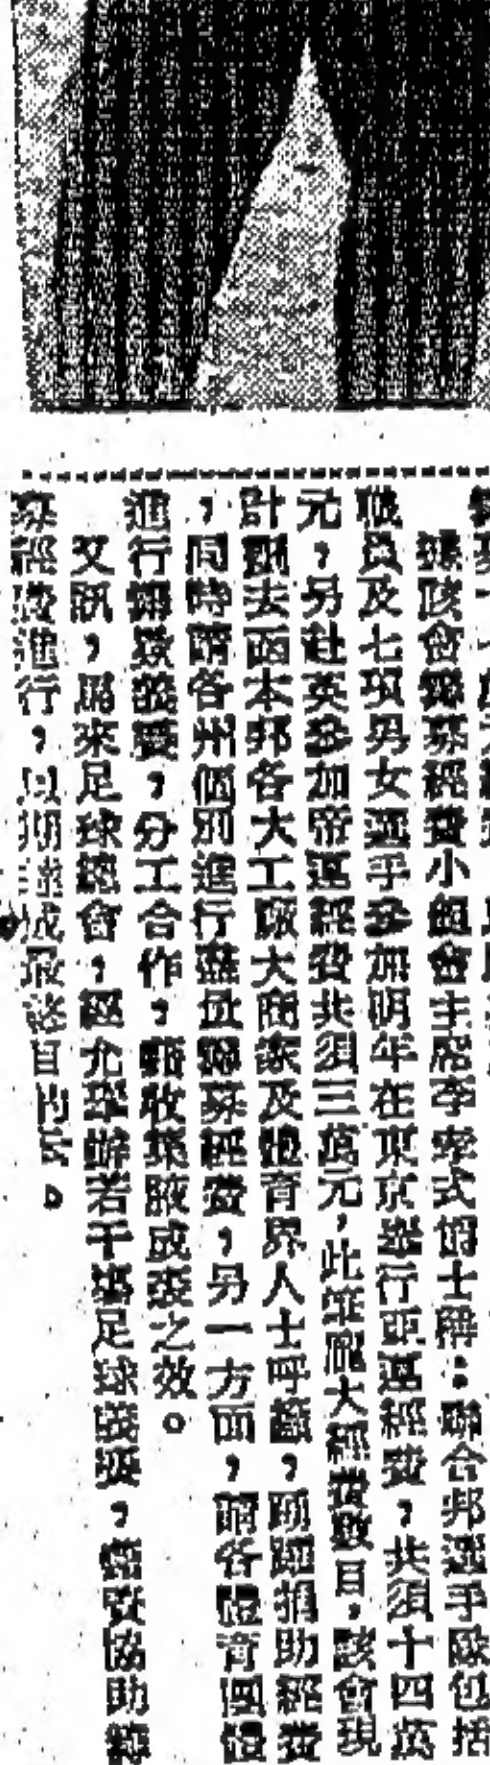 據該會籌募經費小組會主席李孝式博士稱：聯合邦選手隊包括
職員及七項男女選手參加明年在東京舉行亞運經費，共須十四萬
元，另赴英參加帝運經費共須三萬元，此筆龐大經費數目，該會現
計劃去函本邦各大工廠大商家及體育界人士呼籲，踴躍捐助經費
，同時請各州個別進行盡量籌募經費，另一方面，請各體育團體
進行籌款義賽，分工合作，藉收集腋成裘之效。
又訊，馬來足球總會，經允舉辦若干場足球義賽，籌資協助籌
募經費進行，以期達成最終目的云。